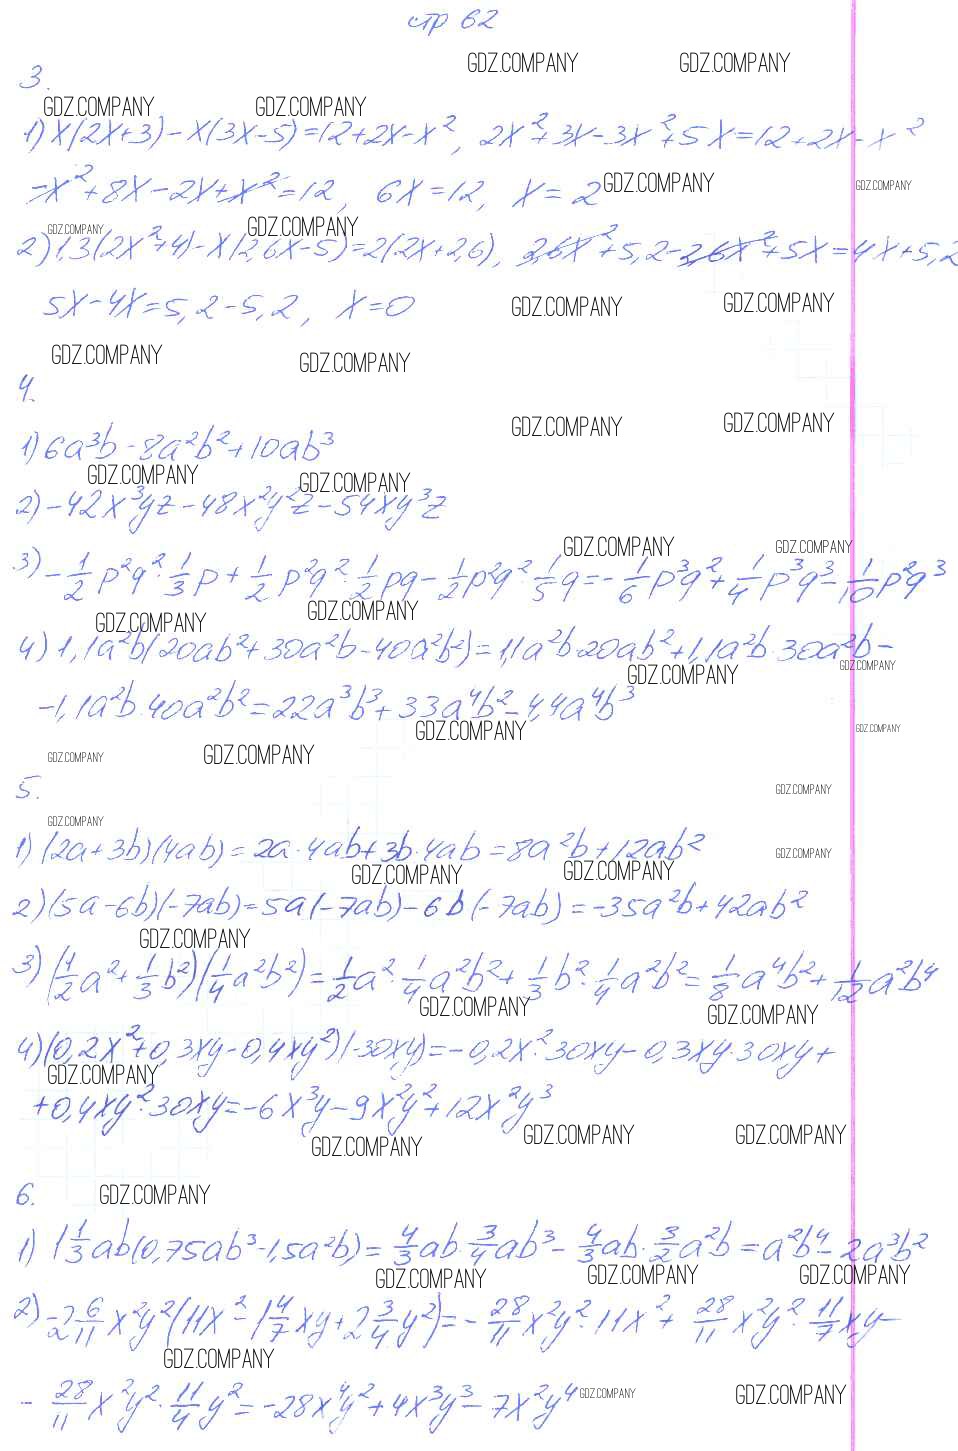 стр 62
GDZ.COMPANY GDZ.COMPANY
3.
GDZ.COMPANY GDZ.COMPANY
1) x(2x+3)-x(3x-5)=12+2x-x², 2x²+3x-3x²+5x=12+2x-x²
-x²+8x-2x+x²=12, 6x=12, x=2 GDZ.COMPANY GDZ.COMPANY
GDZ.COMPANY GDZ.COMPANY
2) 1,3(2x²+4)-x(2,6x-5)=2(2x+2,6), 2,6x²+5,2-2,6x²+5x=4x+5,2
5x-4x=5,2-5,2, x=0 GDZ.COMPANY GDZ.COMPANY
GDZ.COMPANY GDZ.COMPANY
4.
GDZ.COMPANY GDZ.COMPANY
1) 6a³b-8a²b²+10ab³
GDZ.COMPANY GDZ.COMPANY
2) -42x³yz-48x²y²z-54xy³z
GDZ.COMPANY GDZ.COMPANY
3) -1/2 p²q²·1/3 p+1/2 p²q²·1/2 pq-1/2 p²q²·1/5 q=-1/6 p³q²+1/4 p³q³-1/10 p²q³
GDZ.COMPANY GDZ.COMPANY
4) 1,1a²b(20ab²+30a²b-40a²b²)=1,1a²b·20ab²+1,1a²b·30a²b-
GDZ.COMPANY GDZ.COMPANY
-1,1a²b·40a²b²=22a³b³+33a⁴b²-4,4a⁴b³
GDZ.COMPANY GDZ.COMPANY
GDZ.COMPANY GDZ.COMPANY
5.
GDZ.COMPANY
GDZ.COMPANY
1) (2a+3b)(4ab)=2a·4ab+3b·4ab=8a²b+12ab²
GDZ.COMPANY
GDZ.COMPANY GDZ.COMPANY
2) (5a-6b)(-7ab)=5a(-7ab)-6b(-7ab)=-35a²b+42ab²
GDZ.COMPANY
3) (1/2 a²+1/3 b²)(1/4 a²b²)=1/2 a²·1/4 a²b²+1/3 b²·1/4 a²b²=1/8 a⁴b²+1/12 a²b⁴
GDZ.COMPANY GDZ.COMPANY
4) (0,2x²+0,3xy-0,4xy²)(-30xy)=-0,2x²·30xy-0,3xy·30xy+
GDZ.COMPANY
+0,4xy²·30xy=-6x³y-9x²y²+12x²y³
GDZ.COMPANY GDZ.COMPANY GDZ.COMPANY
6. GDZ.COMPANY
1) 1 1/3 ab(0,75ab³-1,5a²b)=4/3 ab·3/4 ab³-4/3 ab·3/2 a²b=a²b⁴-2a³b²
GDZ.COMPANY GDZ.COMPANY GDZ.COMPANY
2) -2 6/11 x²y²(11x²-1 4/7 xy+2 3/4 y²)=-28/11 x²y²·11x²+28/11 x²y²·11/7 xy-
GDZ.COMPANY
-28/11 x²y²·11/4 y²=-28x⁴y²+4x³y³-7x²y⁴ GDZ.COMPANY GDZ.COMPANY